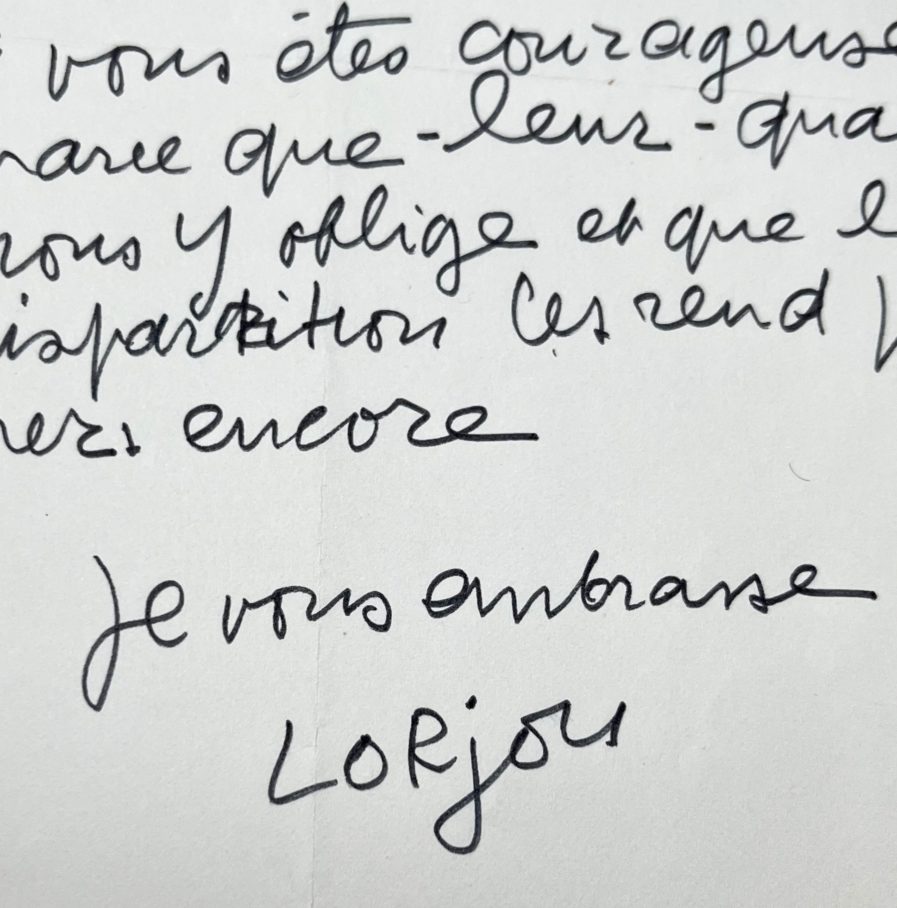 vous êtes courageuse
parce que - leur - qua
vous y oblige et que l
isparition les rend p
hers encore
Je vous embrasse
LORjou